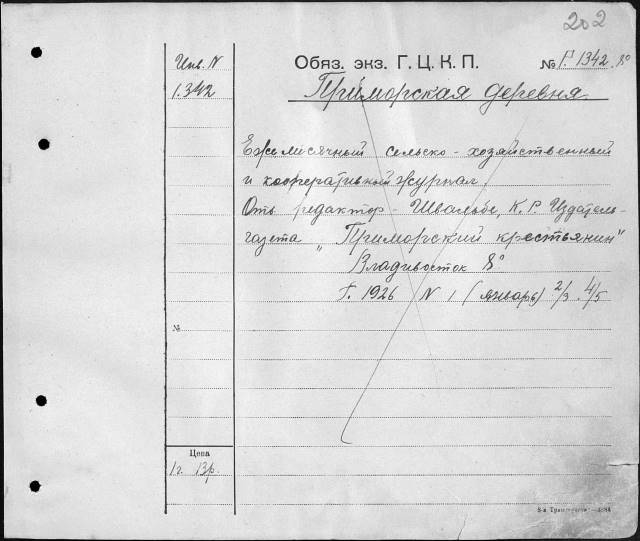 202
Инв. N
1.342
Обяз. экз. Г. Ц. К. П. № P 1342. 8°
Приморская деревня
Ежемисячный сельско-хозяйственный
и кооперативный журнал.
Отв. редактор - Швальбе, К. Р. Издатель-
газета „Приморский крестьянин"
Владивосток 8°
Г. 1926 N 1 (январь) 2/3 4/5
№
Цена
1 г. 13 р.